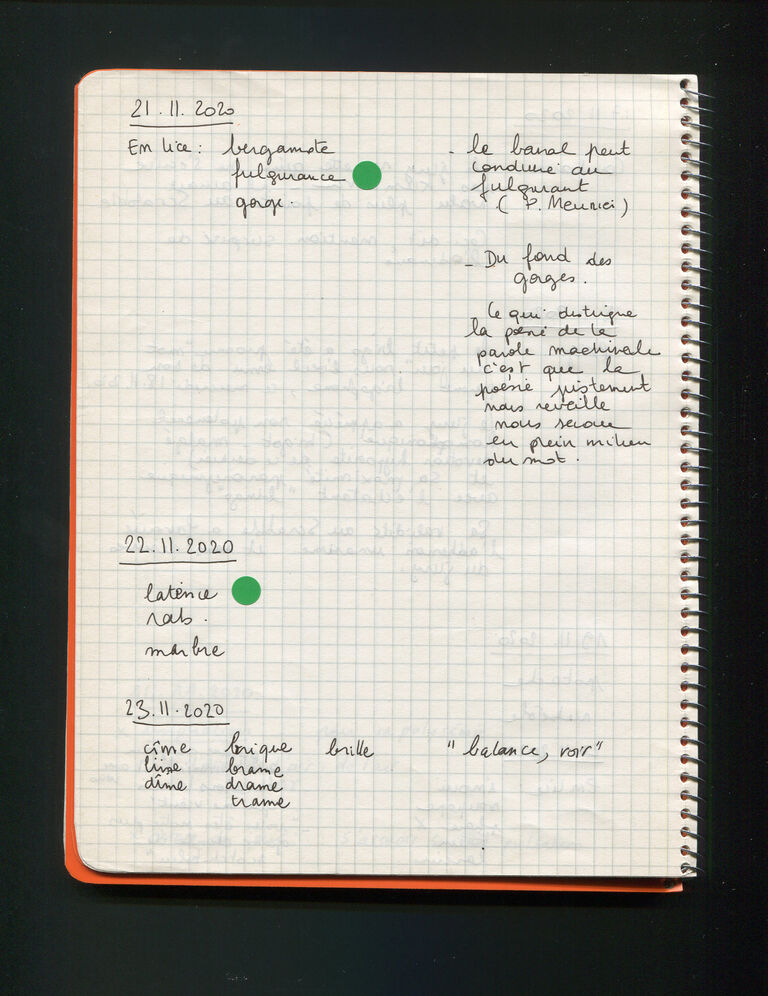 21.11.2020
En lice : bergamote
fulgurance
gorge.
- le banal peut
conduire au
fulgurant
( P. Meunier )
- Du fond des
gorges.
Ce qui distingue
la poésie de la
parole machinale
c'est que la
poésie justement
nous réveille
nous secoue
en plein milieu
du mot.
22.11.2020
latence
rab.
marbre
23.11.2020
cîme brique brille "balance, voir"
brame
dîme drame
trame